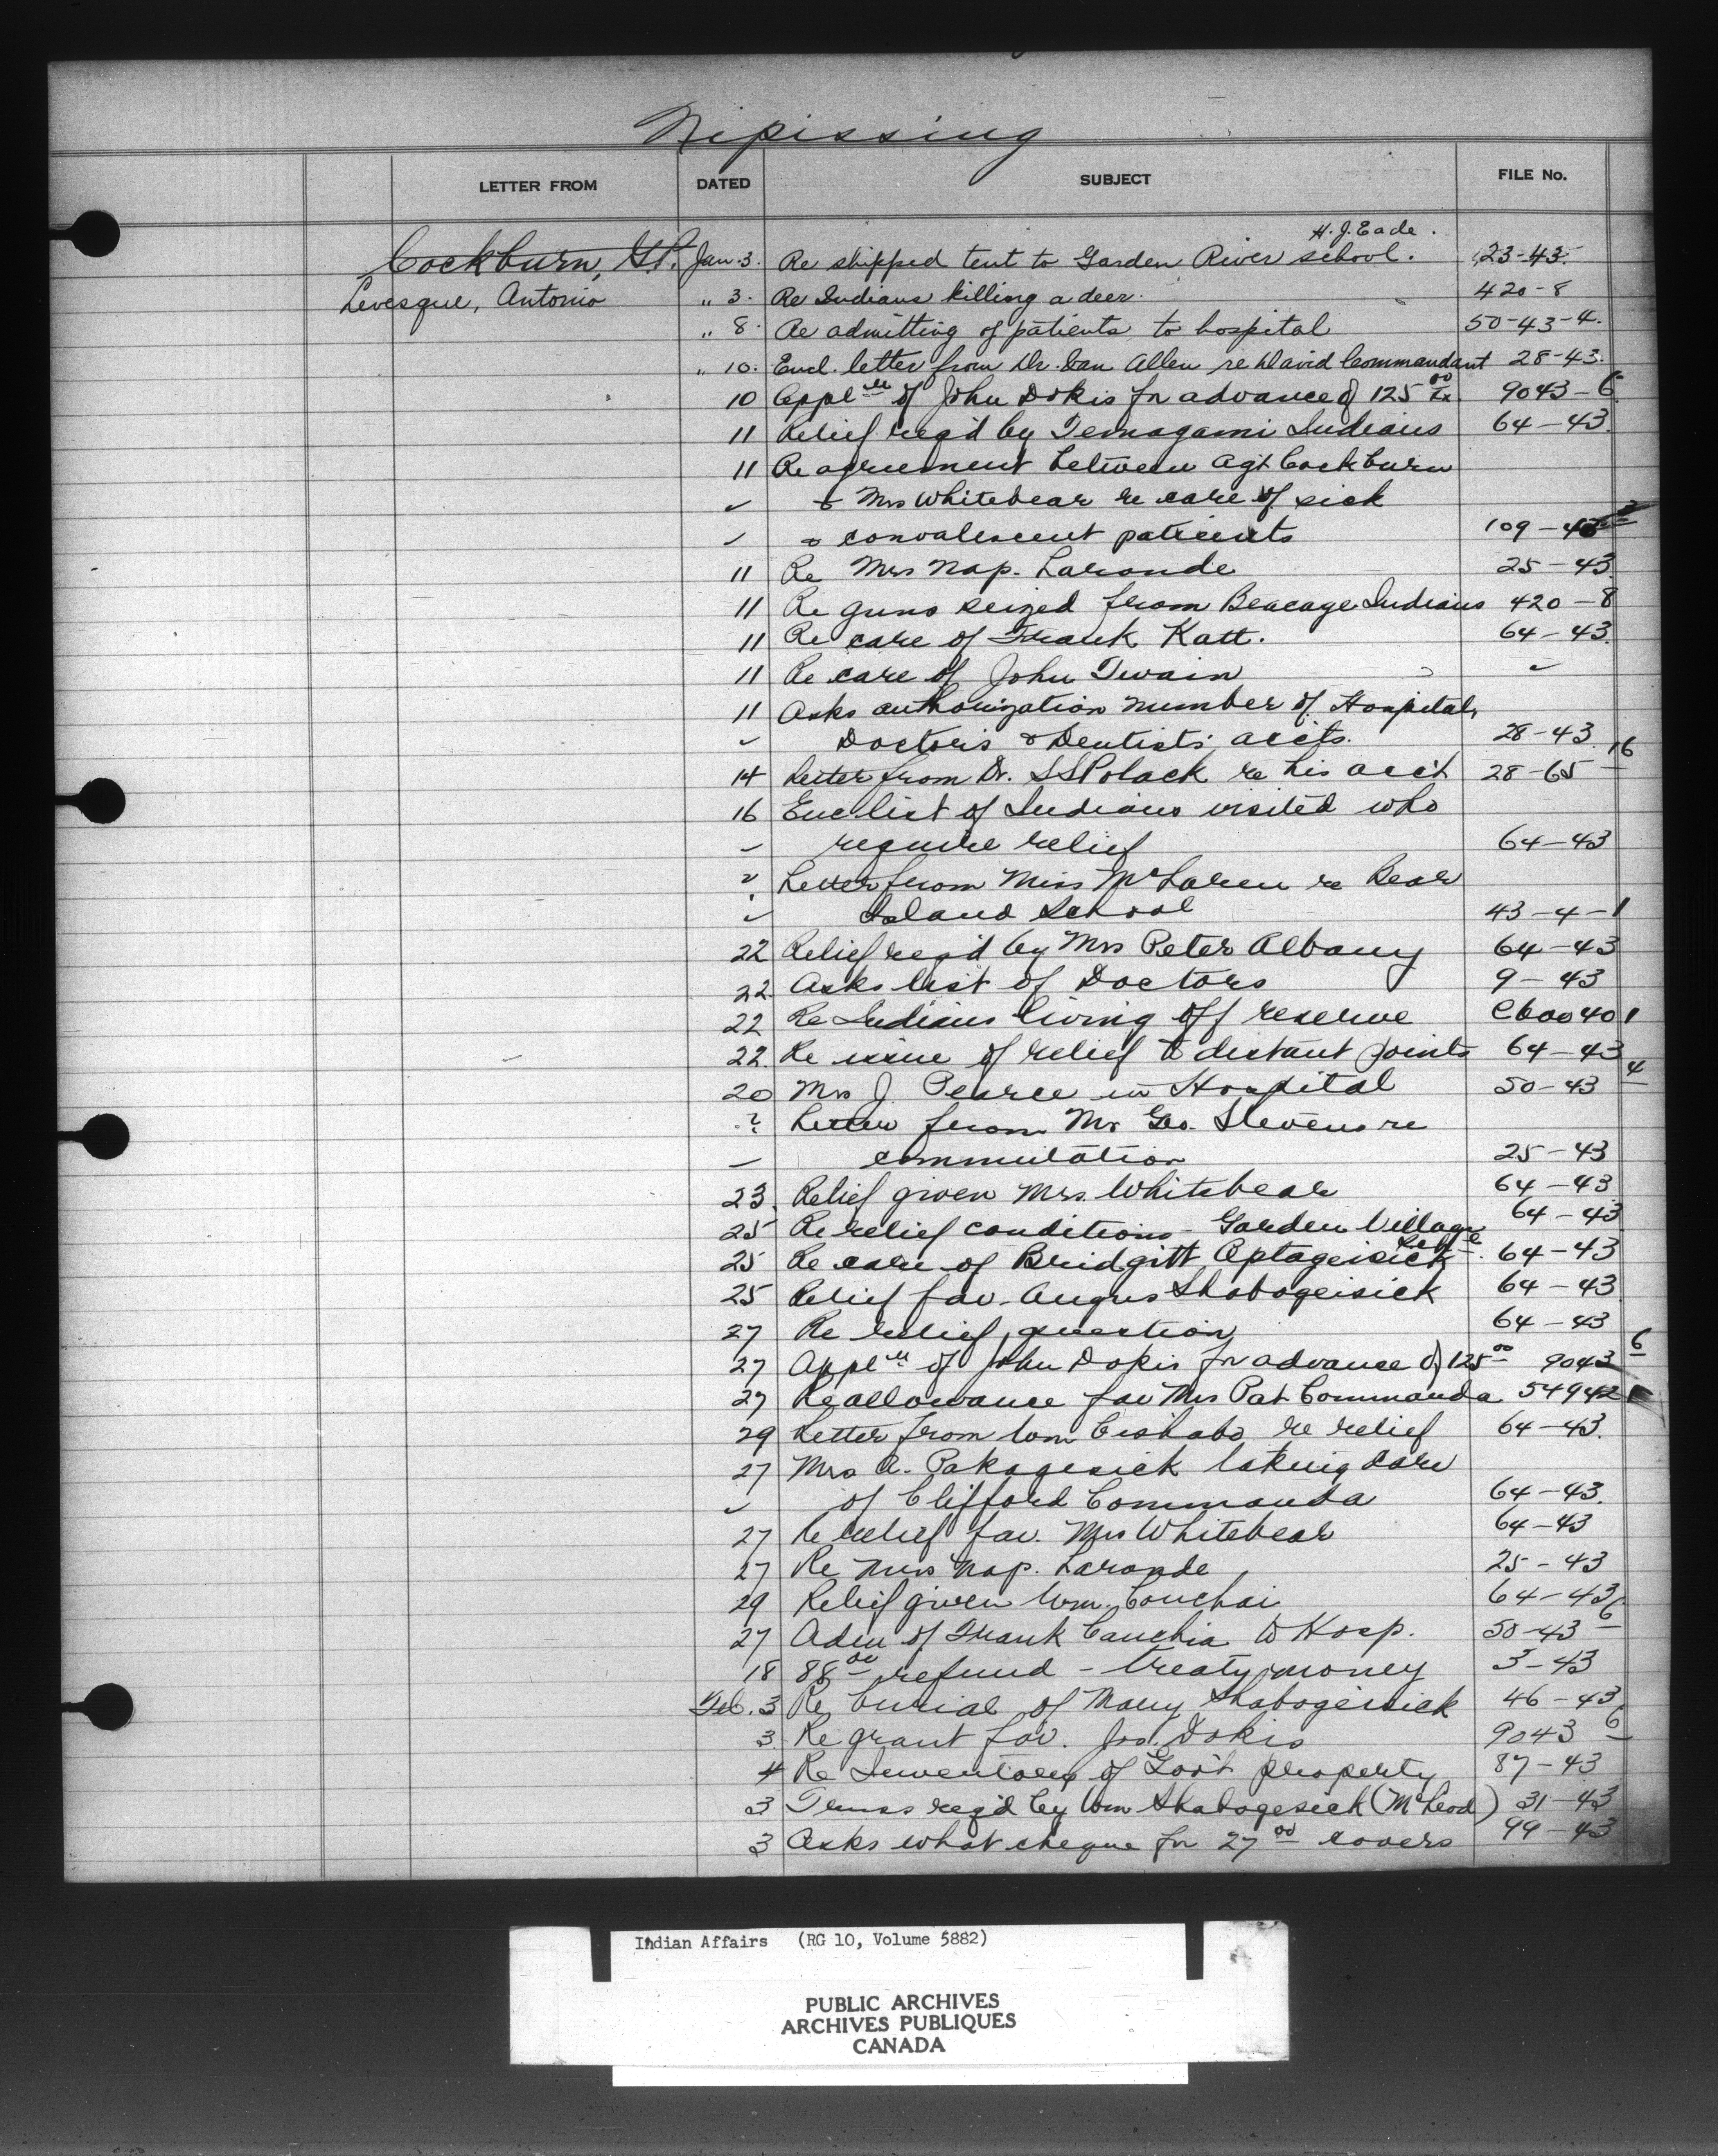 Nipissing
LETTER FROM DATED SUBJECT FILE No.
H. J. Eade.
Cockburn, Jan. 3. Re shipped tent to Garden River school. 23-43.
Levesque, Antonio " 3. Re Indians killing a deer. 420-8
" 8. Re admitting of patients to hospital 50-43-4.
" 10. Encl. letter from Dr. Dan Allen re David Commandant 28-43.
10 Applctn of John Dokis for advance of 125.00 9043-6
11 Relief req'd by Temagami Indians 64-43.
11 Re agreement between Agt Cockburn
✓ & Mrs Whitebear re care of sick
✓ & convalescent patients 109-43
11 Re Mrs Nap. Laronde 25-43.
11 Re guns seized from Beacage Indians 420-8
11 Re care of Frank Katt. 64-43.
11 Re care of John Twain ✓
11 Asks authorization number of Hospitals,
✓ Doctors & Dentists accts. 28-43.
14 Letter from Dr. S S Polack re his acc't 28-65-16
16 Enc. list of Indians visited who
✓ require relief 64-43
? Letter from Miss McLaren re Bear
✓ Island School 43-4-1
22 Relief req'd by Mrs Peter Albany 64-43
22. Asks list of Doctors 9-43
22 Re Indians living off reserve 600401
22. Re issue of relief to distant points 64-43
20 Mrs J. Pearce in Hospital 50-43-4
? Letter from Mr Geo. Stevens re
commutation 25-43
23. Relief given Mrs. Whitebear 64-43
25 Re relief conditions - Garden Village 64-43
25 Re care of Bridgitt Aptageisick. 64-43
25 Relief fav. Angus Shabogeisick 64-43
27 Re relief question 64-43
27 Applctn of John Dokis for advance of 125.00 9043-6
27 Re allowance fav Mrs Pat Commanda 54942
29 Letter from Wm Cishabo re relief 64-43.
27 Mrs A. Pakagesick taking care
✓ of Clifford Commanda 64-43.
27 Re relief fav. Mrs Whitebear 64-43
27 Re Mrs Nap. Laronde 25-43
29 Relief given Wm. Couchai 64-43
27 Adm of Frank Cauchia to Hosp. 50-43-6
18 88.00 refund - treaty money 3-43
Feb. 3 Re burial of Mary Shabogeisick 46-43
3. Re grant fav. Jos. Dokis 9043-6
4 Re Inventory of Gov't property 87-43
3 Truss req'd by Wm Shabogesick (McLeod) 31-43
3 Asks what cheque for 27.00 covers 99-43
Indian Affairs (RG 10, Volume 5882)
PUBLIC ARCHIVES
ARCHIVES PUBLIQUES
CANADA